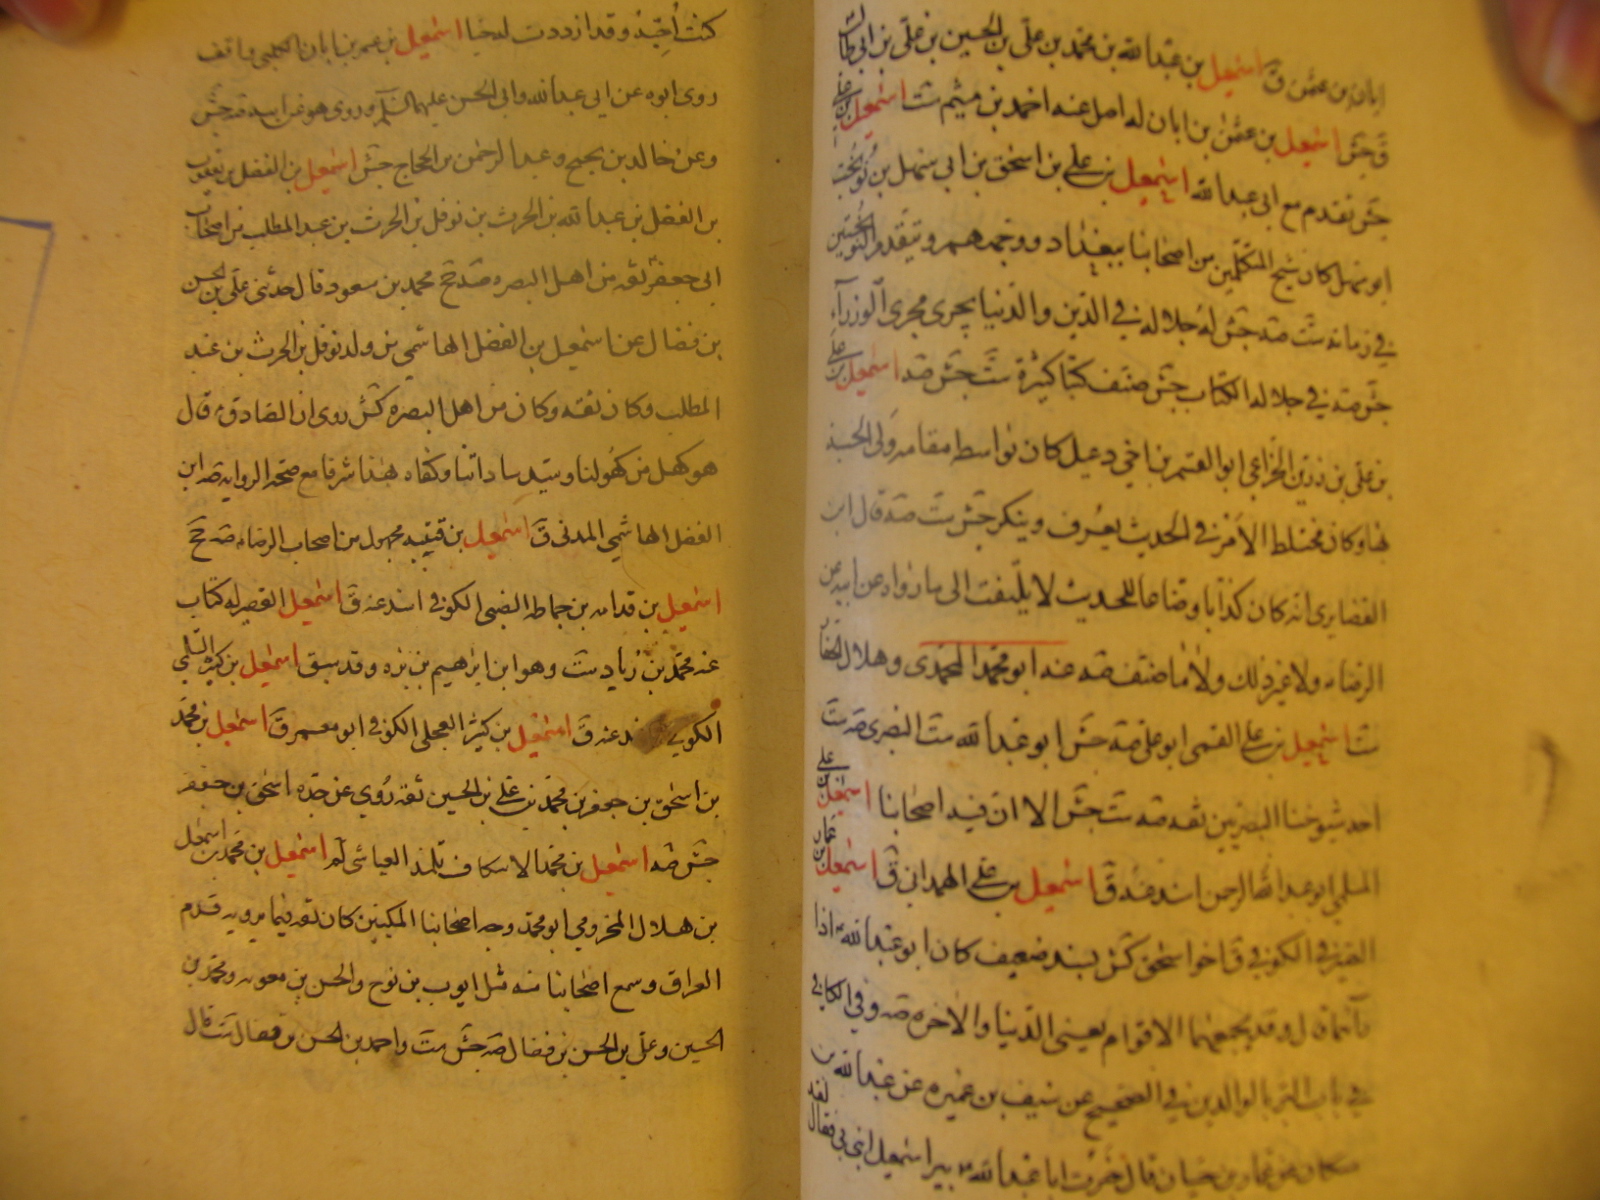 اسمعيل بن عبد الله بن محمد بن علي بن الحسين بن علي بن ابي طالب
ق جش اسمعيل بن عثمن بن ابان له اصل عنه احمد بن ميثم ست اسمعيل بن علي
جش تقدم مع ابي عبد الله اسمعيل بن علي بن اسحق بن ابي سهل بن نوبخت
ابو سهل كان شيخ المتكلمين من اصحابنا ببغداد ووجههم ومتقدم النوبختيين
في زمانه ست صه جش له جلاله في الدين والدنيا يجري مجرى الوزرآء
جش صه في جلاله الكتاب جش صنف كتبا كثيرة ست جش صه اسمعيل بن علي
بن علي بن رزين الخزاعي ابو القسم بن اخي دعبل كان بواسط مقامه وولي الحسبة
بها وكان مختلط الامر في الحديث يعرف وينكر جش ست صه قال ابن
الغضايري انه كان كذابا وضاعا للحديث لا يلتفت الى ما رواه عن ابيه عن
الرضاء ولا غير ذلك ولا ما صنف صه عنه ابو محمد المحمدي وهلال الحفار
ست اسمعيل بن علي القمي ابو علي صه جش ابو عبد الله ست البصري صه ست
احد شيوخنا البصريين ثقه صه ست جش الا ان فيه اصحابنا اسمعيل بن علي
المسلي ابو عبد الرحمن اسند عنه ق اسمعيل بن علي الهمداني ق اسمعيل بن عمار
الصيرفي الكوفي ق اخو اسحق كش بسند ضعيف كان ابو عبد الله اذا
رآهما قال وقد يجمعهما لاقوام يعني الدنيا والاخره صه وفي الكافي
في باب البر بالوالدين في الصحيح عن سيف بن عميره عن عبد الله بن
مسكان عن عمار بن حيان قال خبرت ابا عبد الله ببر اسمعيل ابني بي فقال لقد
كنت احبه وقد ازددت له حبا اسمعيل بن عمر بن ابان الكلبي واقف
روى ابوه عن ابي عبد الله وابي الحسن عليهما السلم وروى هو عن ابيه صه جش
وعن خالد بن نجيح وعبد الرحمن بن الحجاج جش اسمعيل بن الفضل بن يعقوب
بن الفضل بن عبد الله بن الحرث بن نوفل بن الحرث بن عبد المطلب من اصحاب
ابي جعفر ثقه من اهل البصره صه جخ محمد بن مسعود قال حدثني علي بن الحسن
بن فضال عن اسمعيل بن الفضل الهاشمي من ولد نوفل بن الحرث بن عبد
المطلب وكان ثقه وكان من اهل البصره كش روى ان الصادق قال
هو كهل من كهولنا وسيد ساداتنا وكفاه بهذا شرفا مع صحه الروايه صه ابن
الفضل الهاشمي المدني ق اسمعيل بن قتيبه مجهول من اصحاب الرضاء صه جخ
اسمعيل بن قدامه بن حماطه الضبي الكوفي اسند عنه ق اسمعيل القصير له كتاب
عنه محمد بن زياد ست وهو ابن ابرهيم بن بزه وقد سبق اسمعيل بن كثير السلمي
الكوفي اسند عنه ق اسمعيل بن كثير العجلي الكوفي ابو معمر ق اسمعيل بن محمد
بن اسحق بن جعفر بن محمد بن علي بن الحسين ثقه روي عن جده اسحق بن جعفر
جش صه اسمعيل بن محمد الاسكاف تلميذ العياشي لم اسمعيل بن محمد بن اسمعيل
بن هلال المخزومي ابو محمد وجه اصحابنا المكيين كان ثقه فيما يرويه قدم
العراق وسمع اصحابنا منه مثل ايوب بن نوح والحسن بن معويه ومحمد بن
الحسين وعلي بن الحسن بن فضال صه جش ست واحمد بن الحسن بن فضال ست قال